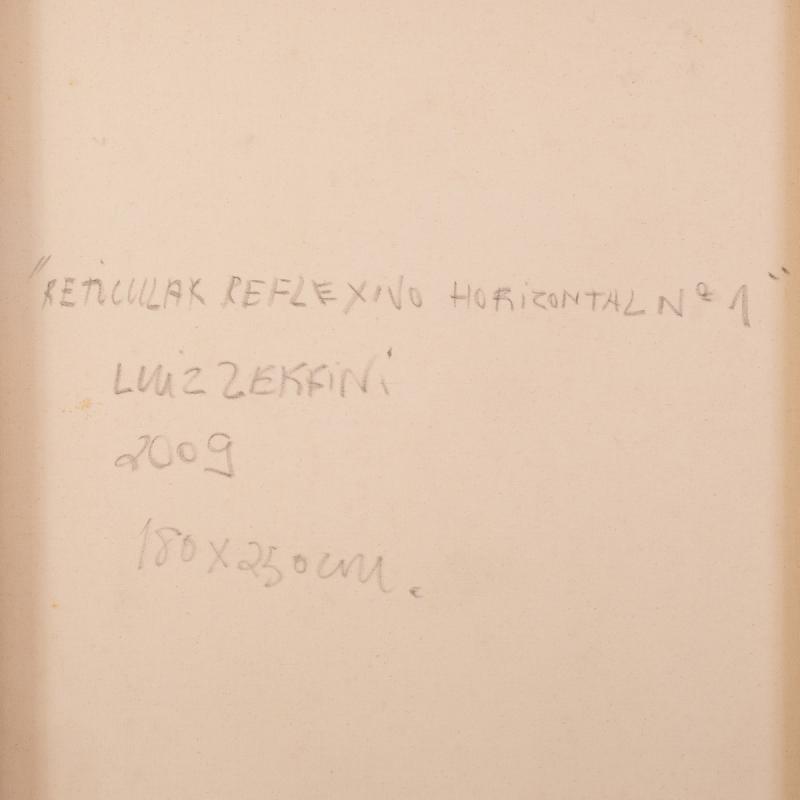 "RETiCULAR REFLEXIVO HORiZONTAL Nº 1"
LUiZ ZERBiNi
2009
180 X 250 cm.